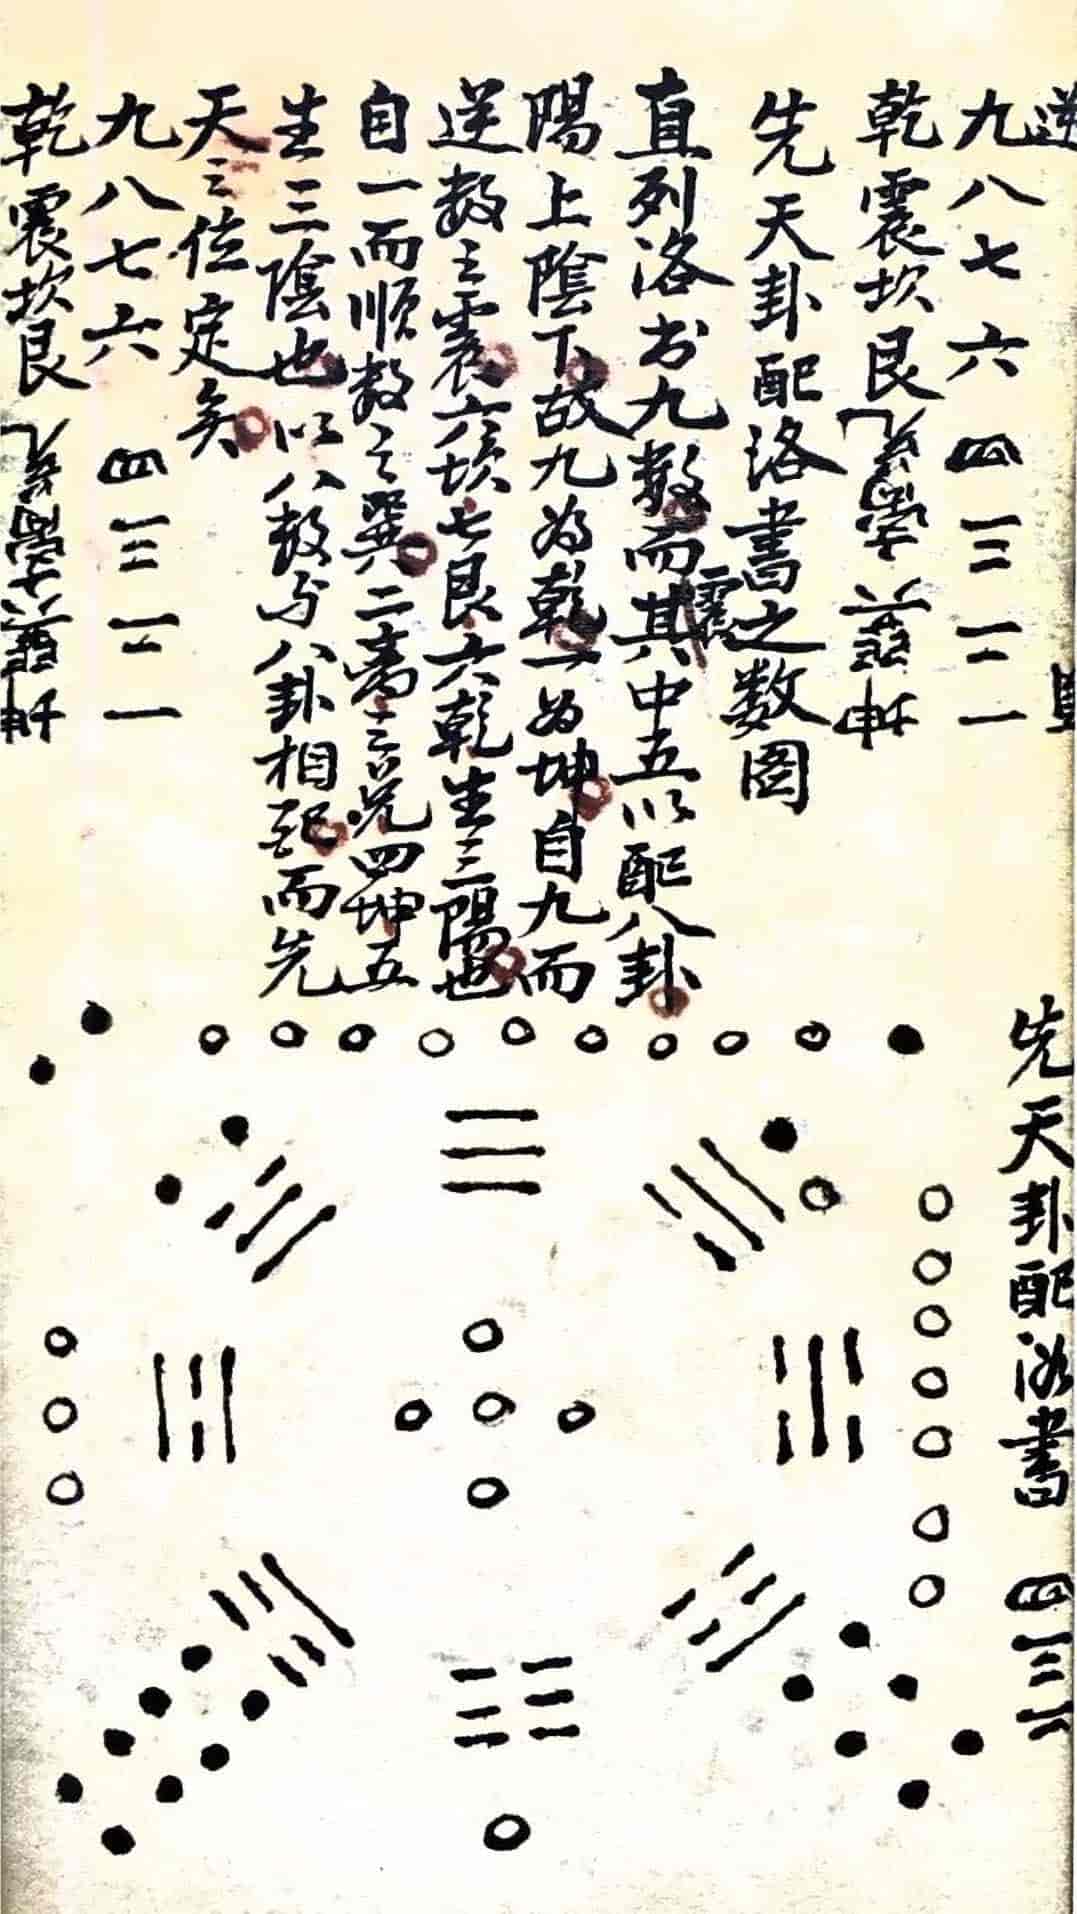 九八七六 四三二一
乾震坎艮 坤
先天卦配洛書之数图
直列洛书九数而其中五以配八卦
震
陽上陰下故九为乾一为坤自九而
逆数之震六坎七艮六乾生三陽也
自一而順数之巽二离三兑四坤五
生三陰也以八数与八卦相配而先
天之位定矣
九八七六 四三二一
乾震坎艮 坤
先天卦配洛書 四三